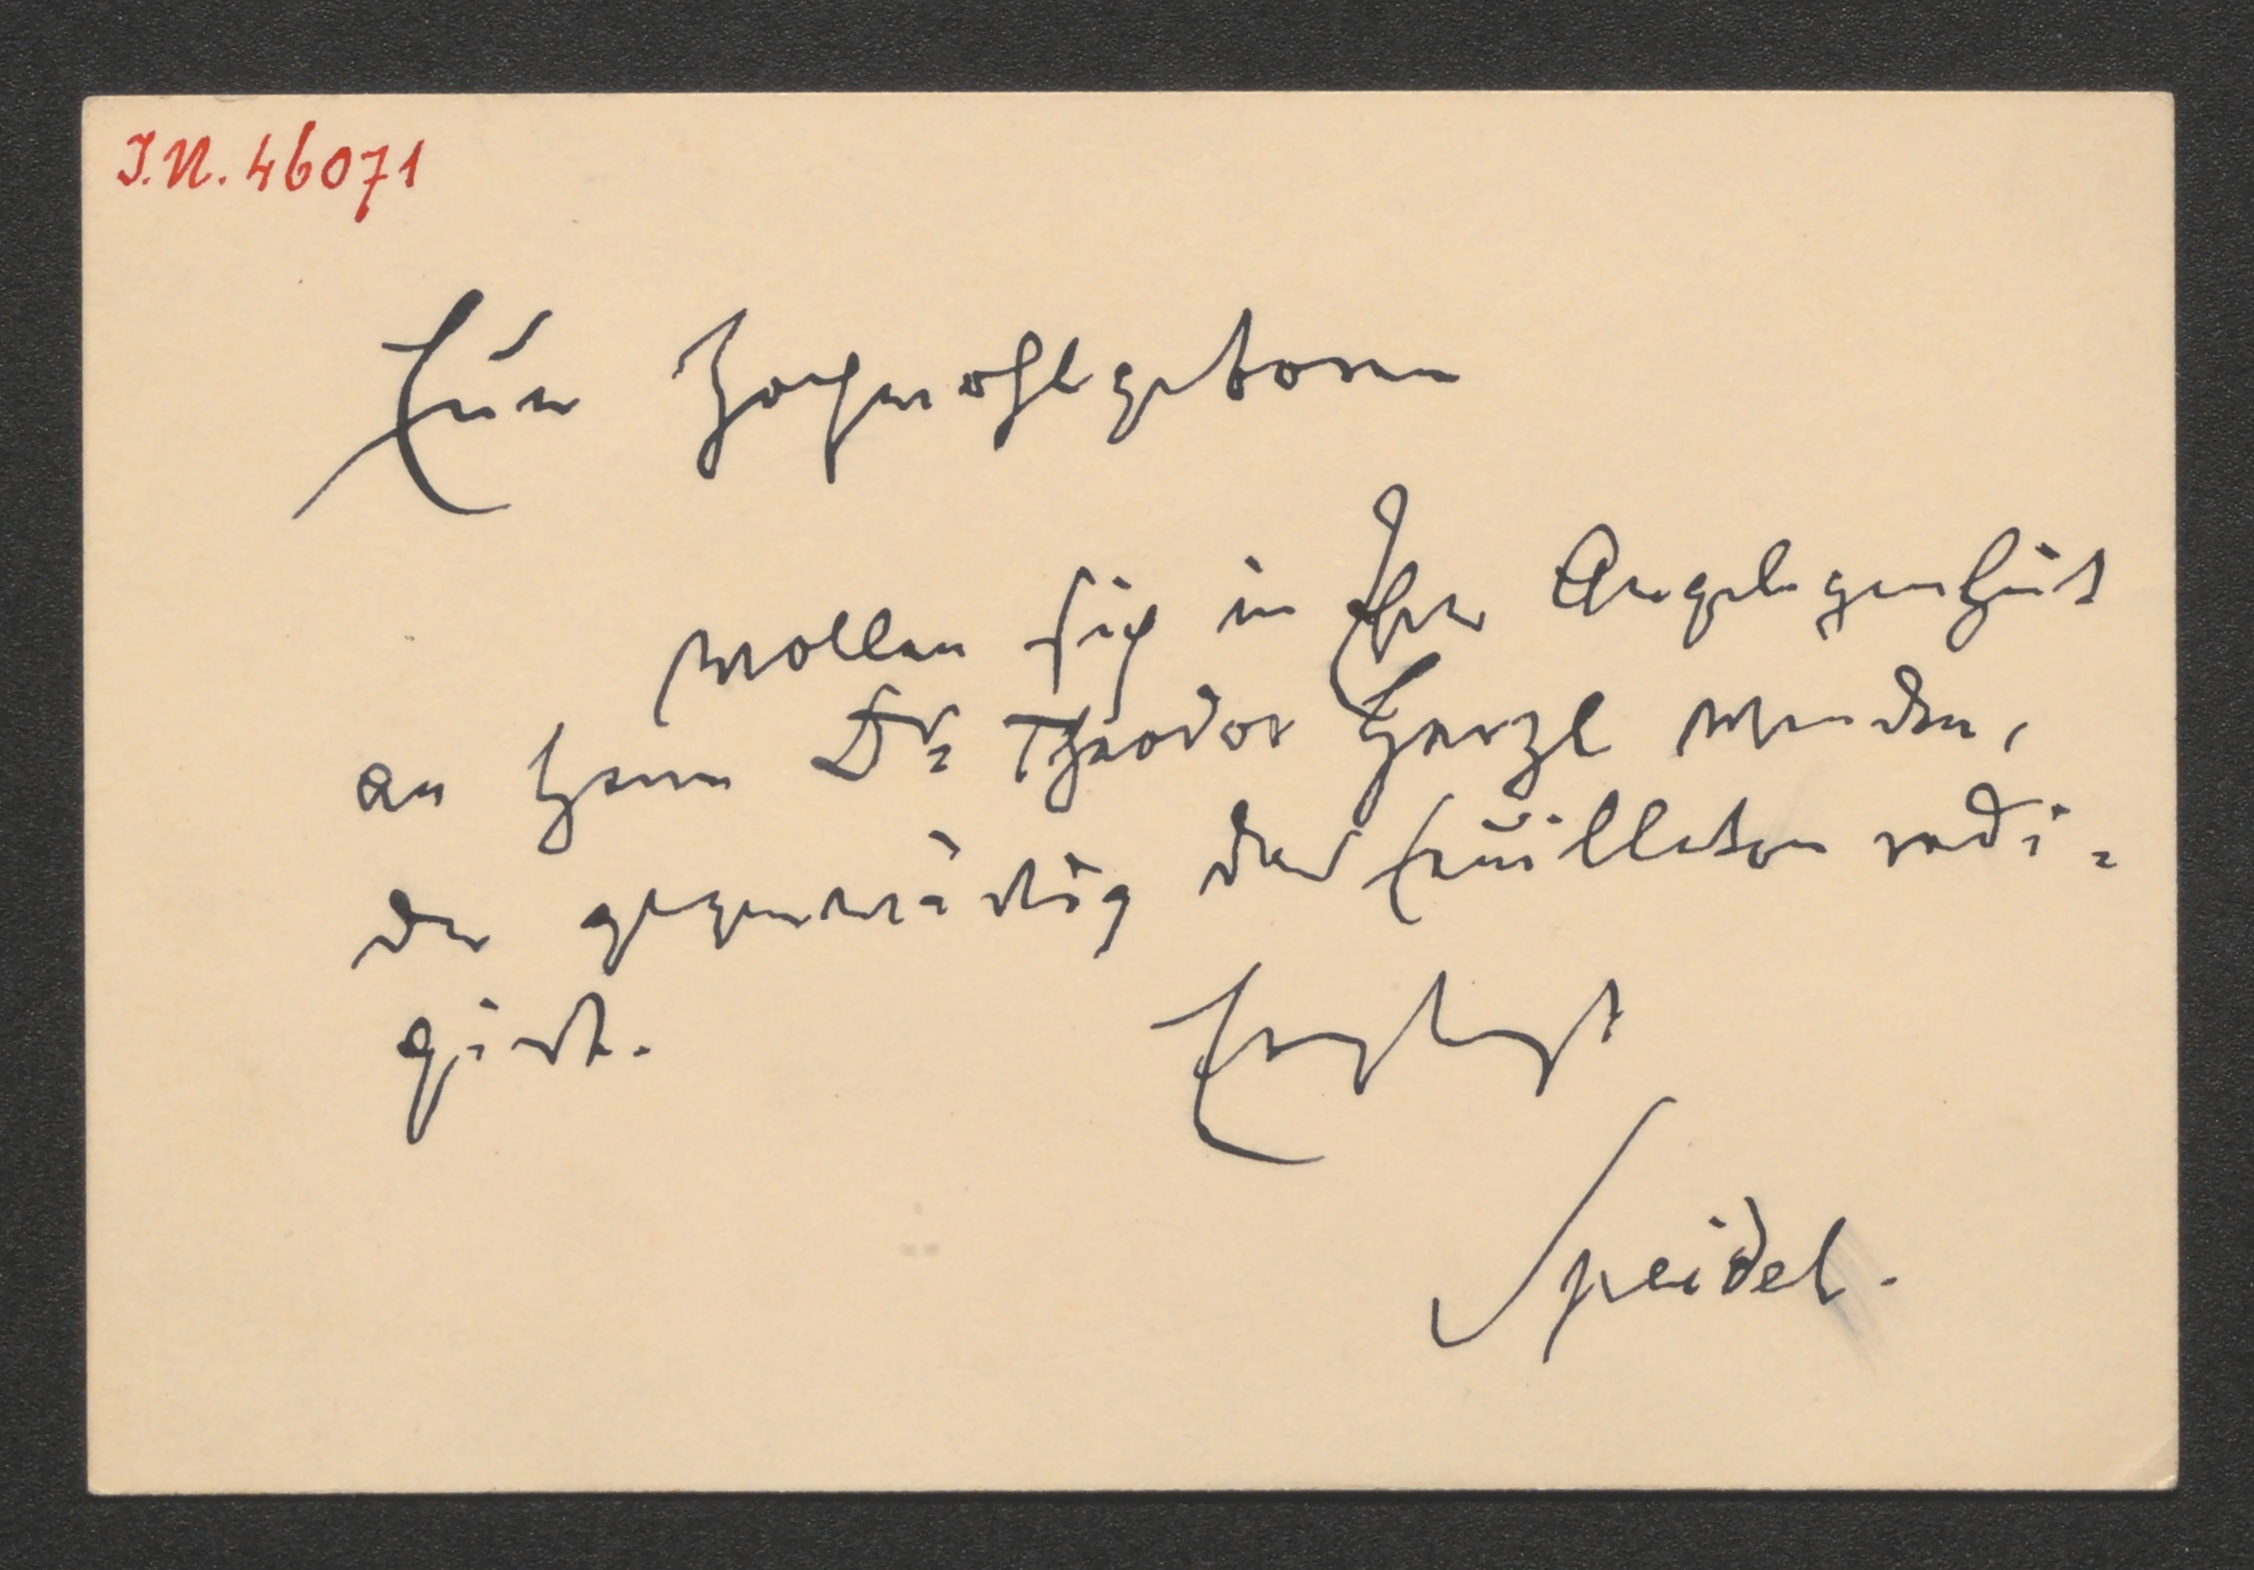 I.N. 46071
Euer Hochwohlgeboren
wollen sich in Ihrer Angelegenheit
an Herrn Dr. Theodor Herzl wenden,
der gegenwärtig das Feuilleton redi-
girt.
Ergebenst
Speidel.